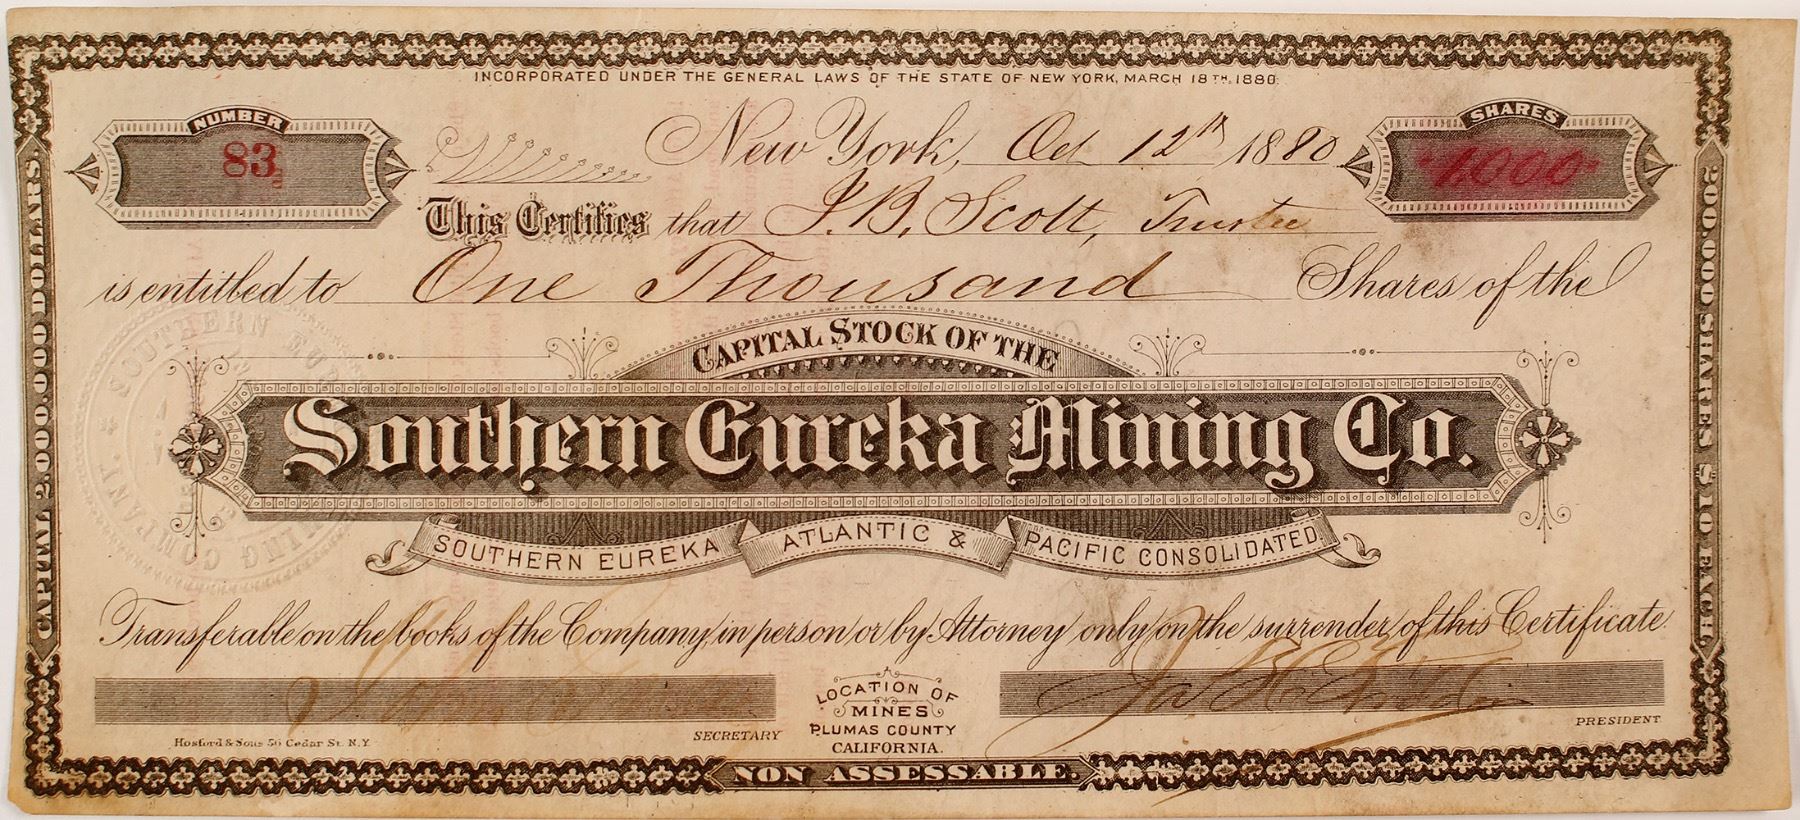 INCORPORATED UNDER THE GENERAL LAWS OF THE STATE OF NEW YORK, MARCH 18TH, 1880.
NUMBER
83
New York, Oct 12th 1880
SHARES
1000
This Certifies that J. B. Scott, Trustee
is entitled to One Thousand Shares of the
CAPITAL STOCK OF THE
Southern Eureka Mining Co.
SOUTHERN EUREKA ATLANTIC & PACIFIC CONSOLIDATED
Transferable on the books of the Company, in person or by Attorney only on the surrender of this Certificate
SECRETARY
LOCATION OF
MINES
PLUMAS COUNTY
CALIFORNIA.
PRESIDENT
Hosford & Sons 56 Cedar St. N.Y.
NON ASSESSABLE.
CAPITAL 2,000,000 DOLLARS
200,000 SHARES $10 EACH
SOUTHERN EUREKA MINING COMPANY